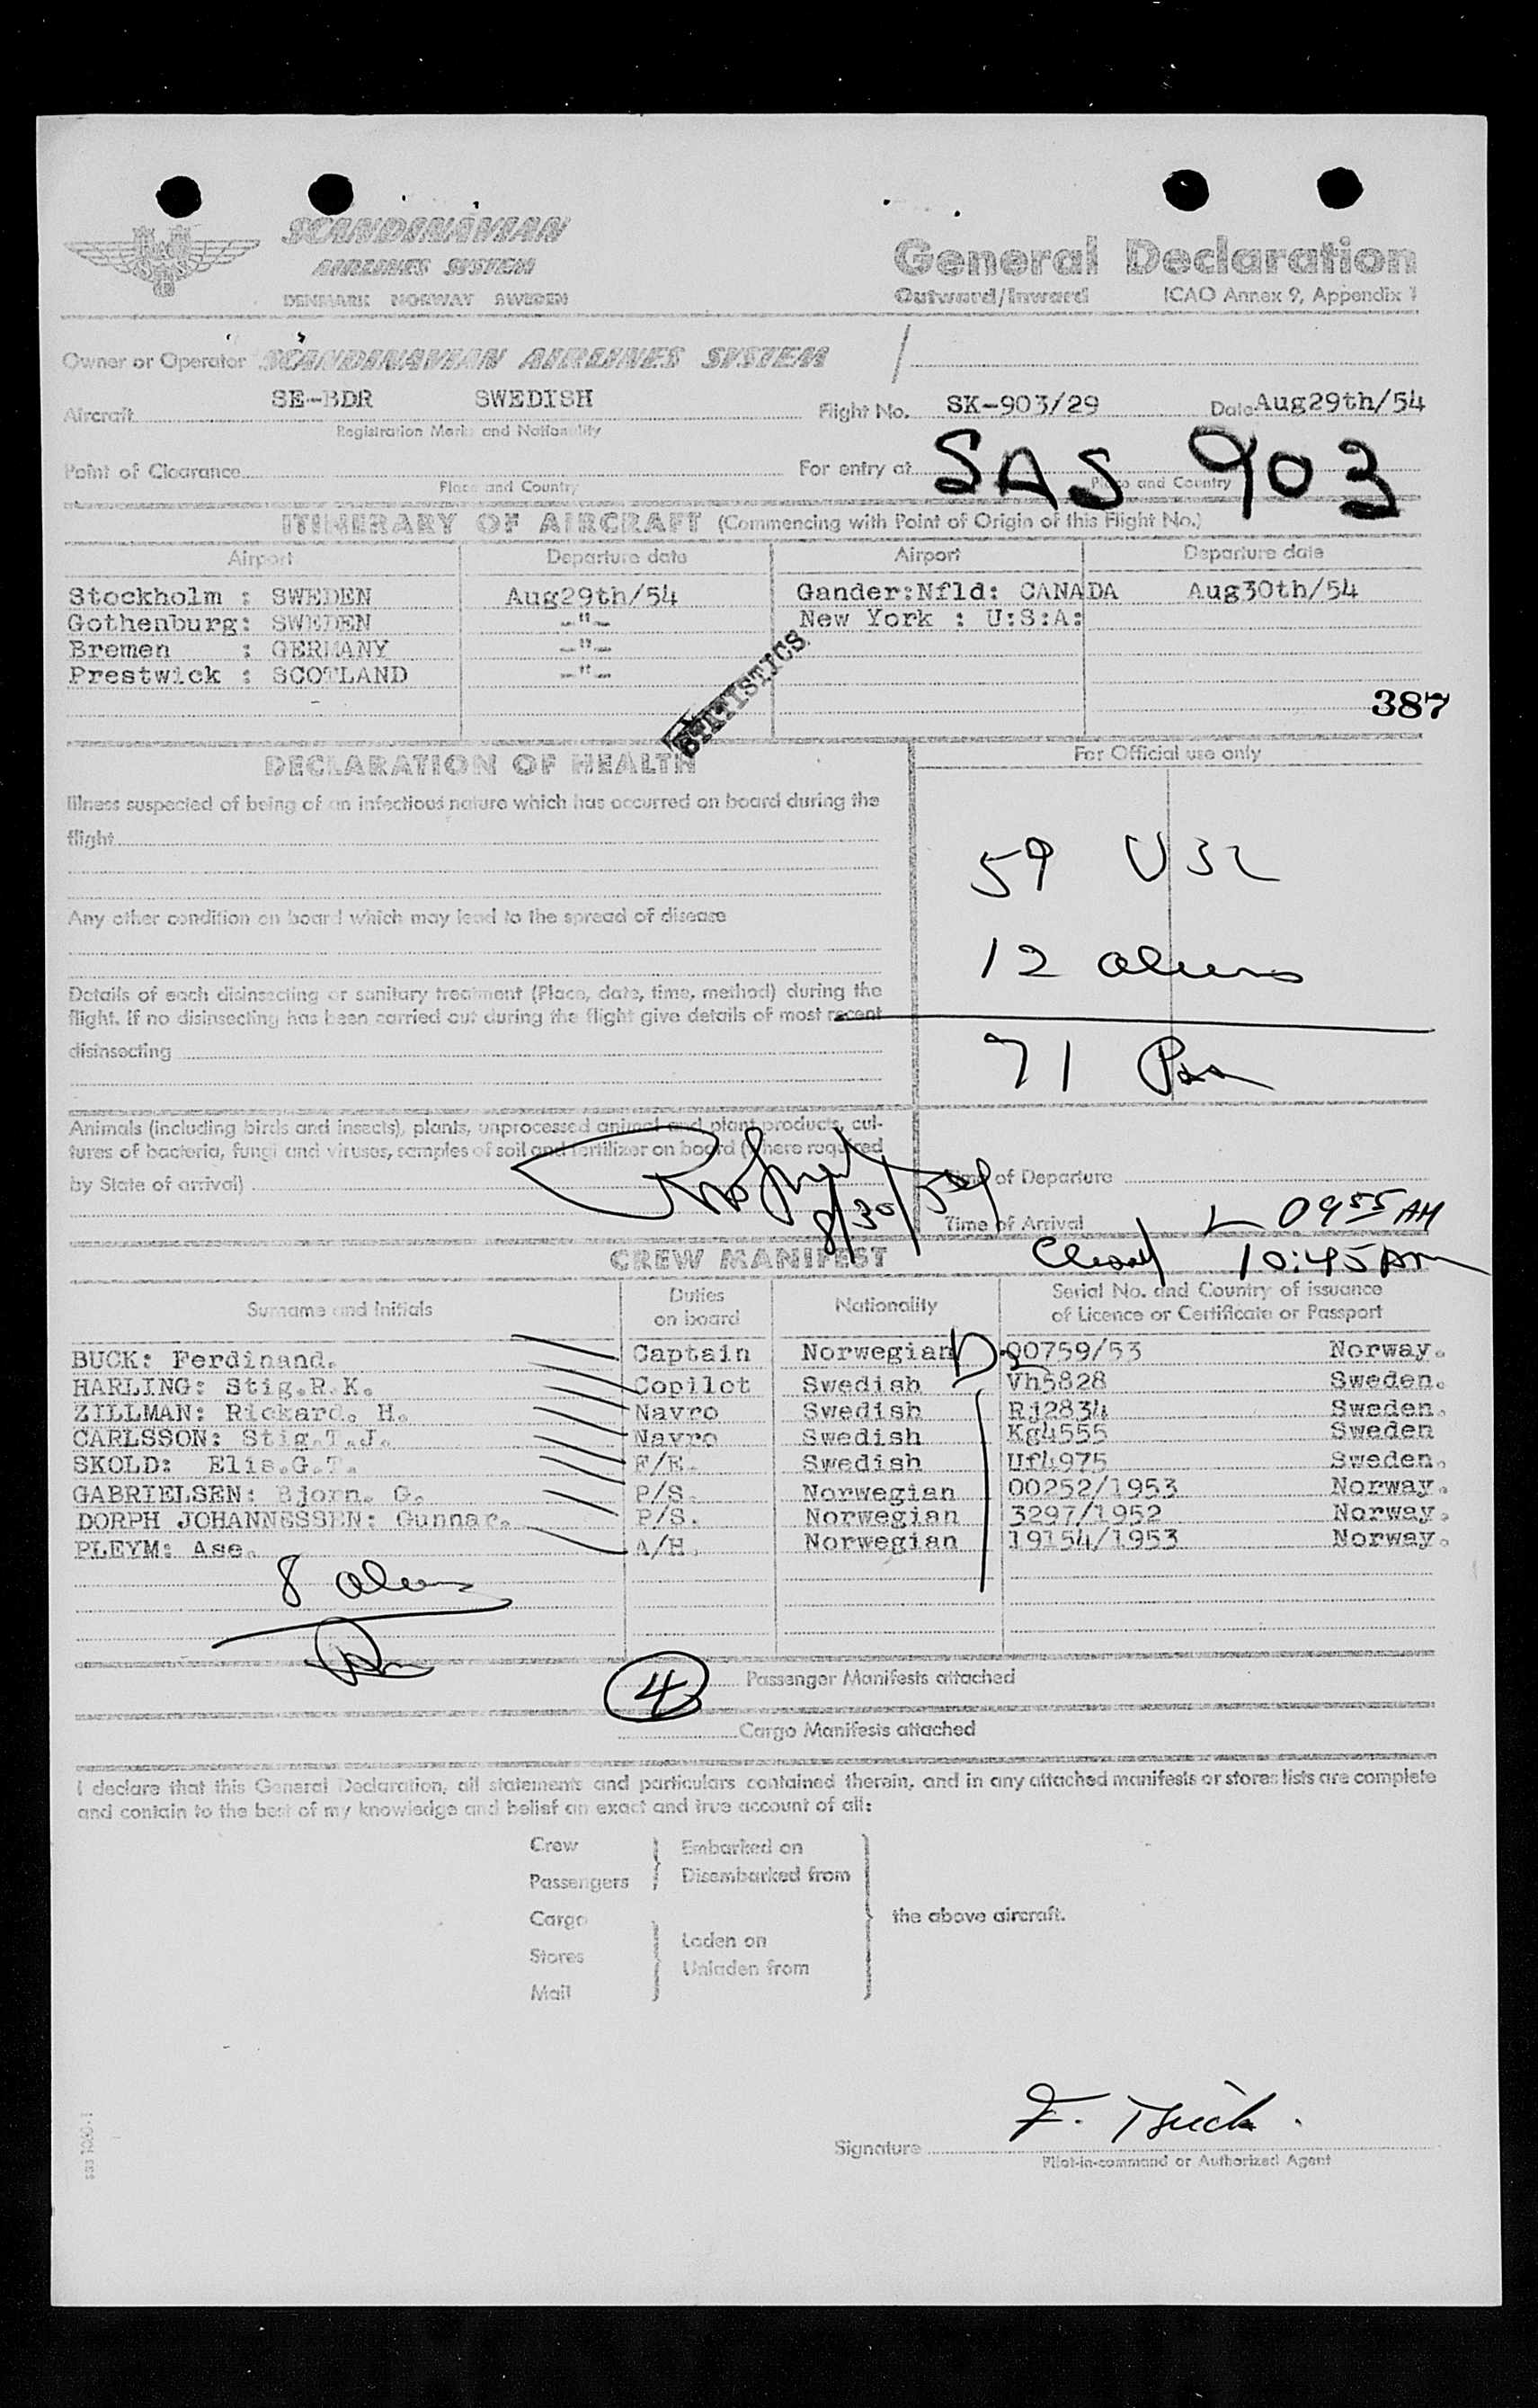 SCANDINAVIAN
AIRLINES SYSTEM
DENMARK NORWAY SWEDEN
General Declaration
Outward/Inward ICAO Annex 9, Appendix 1
Owner or Operator SCANDINAVIAN AIRLINES SYSTEM
Aircraft SE-BDR SWEDISH Flight No. SK-903/29 Date Aug29th/54
Registration Marks and Nationality
Point of Clearance For entry at SAS 903
Place and Country Place and Country
ITINERARY OF AIRCRAFT (Commencing with Point of Origin of this Flight No.)
Airport Departure date Airport Departure date
Stockholm : SWEDEN Aug29th/54 Gander:Nfld: CANADA Aug30th/54
Gothenburg: SWEDEN -"- New York : U:S:A:
Bremen : GERMANY -"-
Prestwick : SCOTLAND -"-
STATISTICS
387
DECLARATION OF HEALTH
For Official use only
Illness suspected of being of an infectious nature which has occurred on board during the
flight
59 USC
Any other condition on board which may lead to the spread of disease
12 aliens
Details of each disinsecting or sanitary treatment (Place, date, time, method) during the
flight. If no disinsecting has been carried out during the flight give details of most recent
disinsecting
71
Animals (including birds and insects), plants, unprocessed animal and plant products, cul-
tures of bacteria, fungi and viruses, samples of soil and fertilizer on board (where required
by State of arrival)
8/30/54
Time of Departure
Time of Arrival L 0955 AM
Cleared 10:45 AM
CREW MANIFEST
Surname and Initials Duties on board Nationality Serial No. and Country of issuance of Licence or Certificate or Passport
BUCK: Ferdinand. Captain Norwegian D 00759/53 Norway.
HARLING: Stig.R.K. Copilot Swedish Vh5828 Sweden.
ZILLMAN: Rickard. H. Navro Swedish Rj2834 Sweden.
CARLSSON: Stig.T.J. Navro Swedish Kg4555 Sweden
SKOLD: Elis.G.T. F/E. Swedish Uf4975 Sweden.
GABRIELSEN: Bjorn. G. P/S. Norwegian 00252/1953 Norway.
DORPH JOHANNESSEN: Gunnar. P/S. Norwegian 3297/1952 Norway.
PLEYM: Ase. A/H. Norwegian 19154/1953 Norway.
8 aliens
4 Passenger Manifests attached
Cargo Manifests attached
I declare that this General Declaration, all statements and particulars contained therein, and in any attached manifests or stores lists are complete
and contain to the best of my knowledge and belief an exact and true account of all:
Crew Embarked on
Passengers Disembarked from
Cargo the above aircraft.
Stores Laden on
Mail Unladen from
F. Buck.
Signature
Pilot-in-command or Authorized Agent